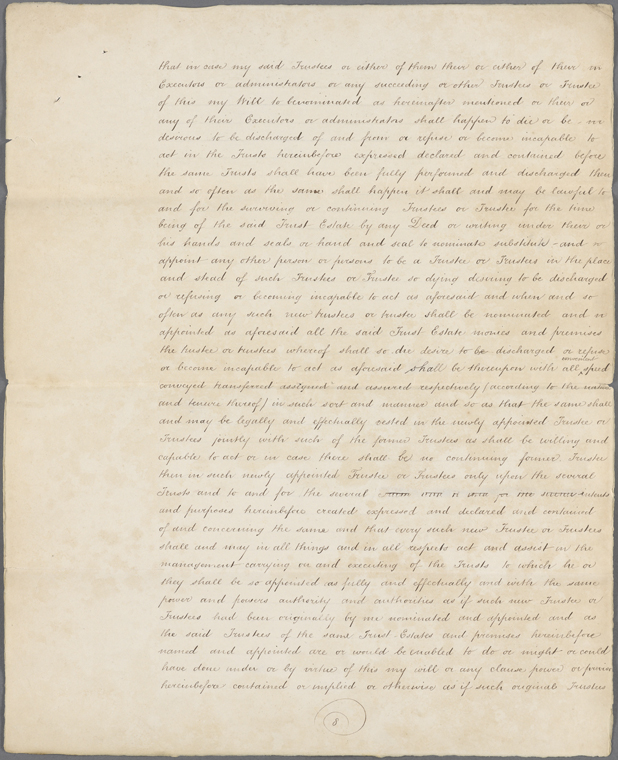 that in case my said Trustees or either of them their or either of their
Executors or administrators or any succeeding or other Trustees or Trustee
of this my Will to be nominated as hereinafter mentioned or their or
any of their Executors or administrators shall happen to die or be
desirous to be discharged of and from or refuse or become incapable to
act in the Trusts hereinbefore expressed declared and contained before
the same Trusts shall have been fully performed and discharged then
and so often as the same shall happen it shall and may be lawful to
and for the surviving or continuing Trustees or Trustee for the time
being of the said Trust Estate by any Deed or writing under their or
his hands and seals or hand and seal to nominate substitute and or
appoint any other person or persons to be a Trustee or Trustees in the place
and stead of such Trustees or Trustee so dying desiring to be discharged
or refusing or becoming incapable to act as aforesaid and when and so
often as any such new trustees or trustee shall be nominated and
appointed as aforesaid all the said Trust Estate monies and premises
the trustee or trustees whereof shall so die desire to be discharged or refuse
or become incapable to act as aforesaid shall be thereupon with all convenient speed
conveyed transferred assigned and assured respectively (according to the nature
and tenure thereof) in such sort and manner and so as that the same shall
and may be legally and effectually vested in the newly appointed Trustee or
Trustees jointly with such of the former Trustees as shall be willing and
capable to act or in case there shall be no continuing former Trustee
then in such newly appointed Trustee or Trustees only upon the several
Trusts and to and for the several intents
and purposes hereinbefore created expressed and declared and contained
of and concerning the same and that every such new Trustee or Trustees
shall and may in all things and in all respects act and assist in the
management carrying on and executing of the Trusts to which he or
they shall be so appointed as fully and effectually and with the same
power and powers authority and authorities as if such new Trustee or
Trustees had been originally by me nominated and appointed and as
the said Trustees of the same Trust Estates and premises hereinbefore
named and appointed are or would be enabled to do or might or could
have done under or by virtue of this my will or any clause power or proviso
hereinbefore contained or implied or otherwise as if such original Trustees
8